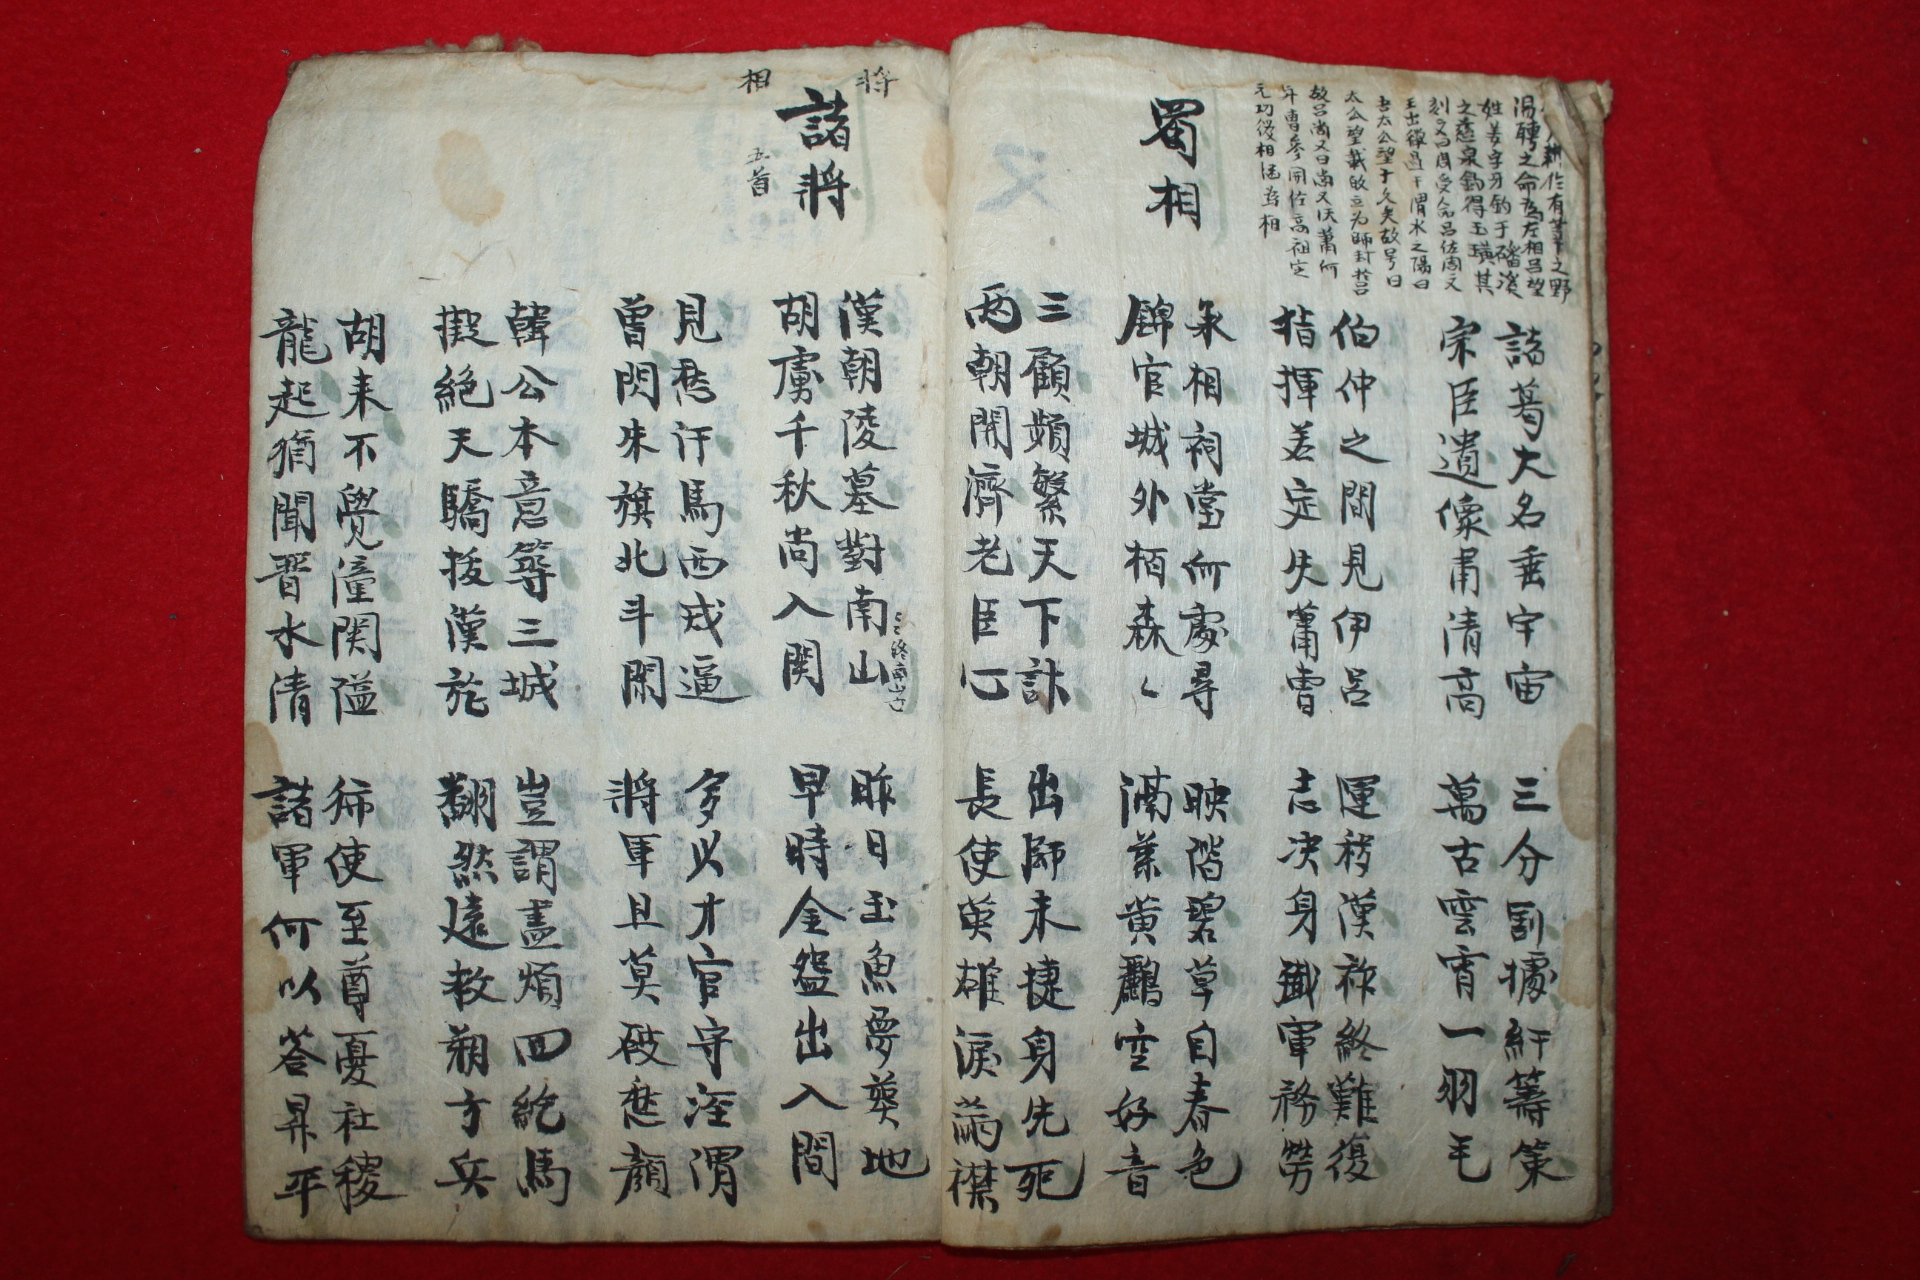 耕作有莘之野
湯聘之命为左相呂望
姓姜字牙釣于磻溪
之茲泉釣得玉璜其
刻曰周受命呂佐周文
王出獵遇于渭水之陽曰
吾太公望子久矣故号曰
太公望載故立为師封於呂
故呂尚又曰尚父沃蕭何
年曹參同佐高祖定
元功後相继为相
諸葛大名垂宇宙
宗臣遺像肅清高
三分割據紆籌策
萬古雲霄一羽毛
伯仲之間見伊呂
指揮若定失蕭曹
運移漢祚終難復
志决身殲軍務勞
蜀相
丞相祠堂何處尋
錦官城外栢森〻
映階碧草自春色
滿葉黃鸝空好音
三顧頻繁天下計
兩朝開濟老臣心
出師未捷身先死
長使英雄淚滿襟
将
相
諸將
五首
漢朝陵墓對南山
胡虜千秋尚入関
昨日玉魚夢葬地
早時金盌出入間
見愁汗馬西戎逼
曾閃朱旗北斗閑
多以才官守涇渭
將軍且莫破愁顏
韓公本意等三城
擬絕天驕拔漢旌
豈謂盡煩回紇馬
翻然遠救朔方兵
胡来不覺潼関隘
龍起猶聞晋水清
獨使至尊憂社稷
諸軍何以答昇平